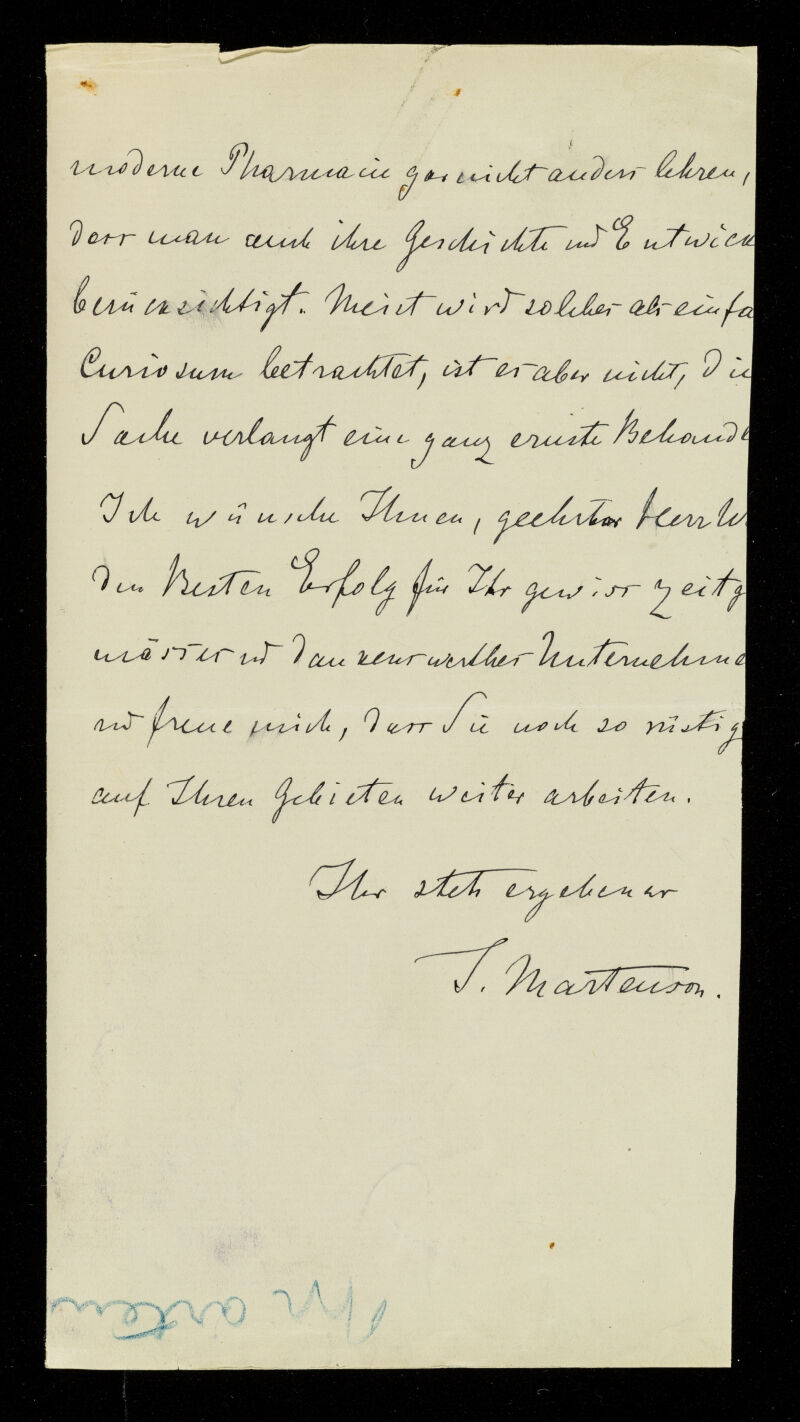 moderne Pharmacie gar nicht anders lehren,
dass man auch ihre Geschichte und Entwick
berücksichtigt. Meist wird solches als einfa
Curiosum betrachtet, ist es aber nicht, die
Sache verlangt eine ganz ernste Behandl
Ich wünsche Ihnen, geehrter Herr W
den Besten Erfolg für Ihr gewiss zeitg
mässes und dankenswerthes Unternehme
und freue mich, dass Sie noch so rüstig
auf Ihren Gebieten weiter arbeiten.
Ihr stets ergebener
J. Martenson.
Marten